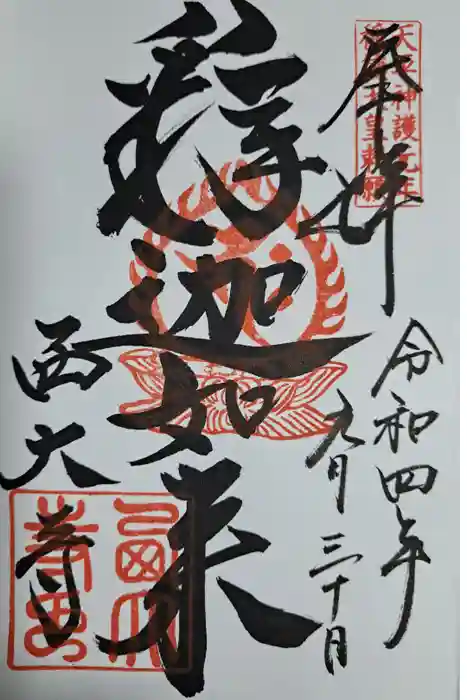 奉拝
天平神護元年
稱徳天皇勅願
令和四年
九月三十日
釈迦如来
西大寺